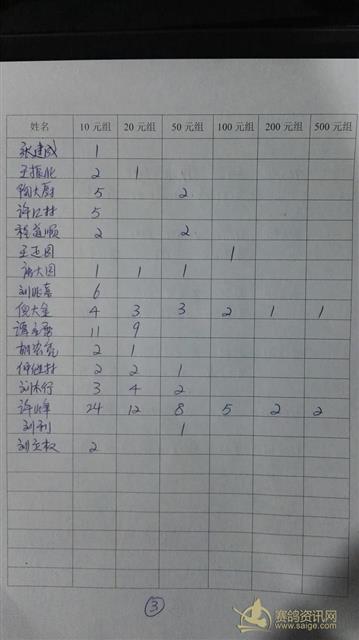 姓名 10元组 20元组 50元组 100元组 200元组 500元组
张建成 1
王振北 2 1
陶大尉 5 2
许江村 5
程道顺 2 2
王正国 1
1 1 1
刘兆喜 6
倪大金 4 3 3 2 1 1
11 9
2 1
2 2 1
刘木行 3 4 2
许峰 24 12 8 5 2 2
刘利 1
刘立权 2
3
赛鸽资讯网
www.saige.com